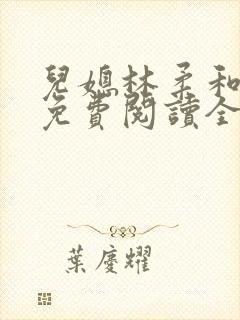 兒媳林柔和
免費閱讀全
葉慶耀